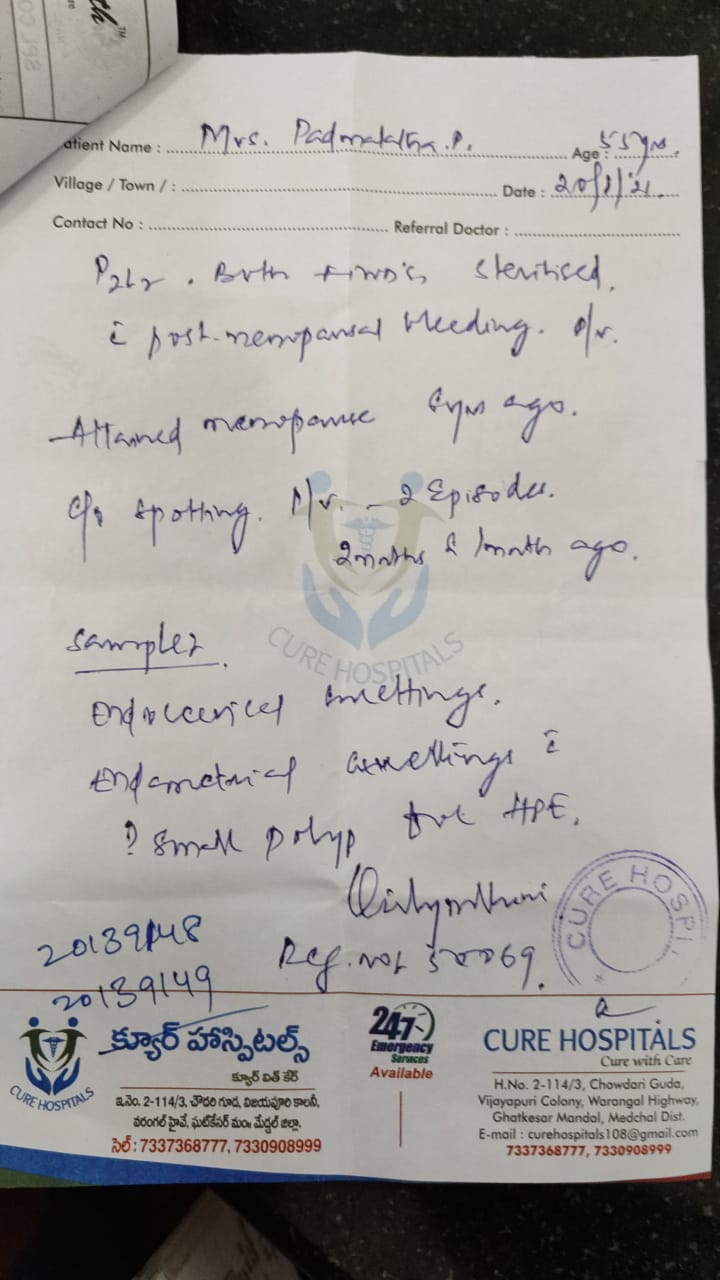 atient Name : Mrs. Padmalatha.P. Age : 55yrs.
Village / Town / : Date : 20/8/21.
Contact No : Referral Doctor :
P2L2 . Both FTND's Sterilised.
c̄ post-menopausal bleeding. P/v.
Attained menopause 6yrs ago.
C/o spotting. P/v. - 2 Episodes.
2months & 1month ago.
CURE HOSPITALS
Sample
Endocervical
Endometrial c̄
? small polyp for HPE.
20139148
20139149
Reg. no:
CURE HOSPI
CURE HOSPITALS
క్యూర్ హాస్పిటల్స్
క్యూర్ విత్ కేర్
ఇ.నెం. 2-114/3, చౌదరి గూడ, విజయపురి కాలనీ,
వరంగల్ హైవే, ఘట్‌కేసర్ మం॥ మేడ్చల్ జిల్లా.
సెల్ : 7337368777, 7330908999
24x7
Emergency
Services
Available
CURE HOSPITALS
Cure with Care
H.No. 2-114/3, Chowdari Guda,
Vijayapuri Colony, Warangal Highway,
Ghatkesar Mandal, Medchal Dist.
E-mail : curehospitals108@gmail.com
7337368777, 7330908999